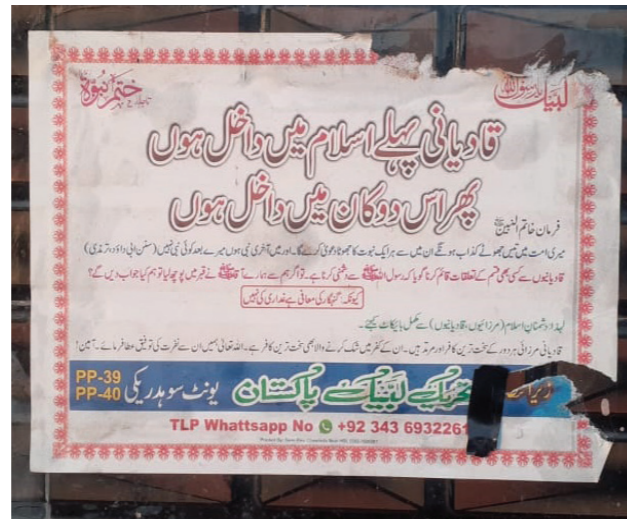 لبیک یا رسول اللہ ﷺ
تاجدار ختم نبوۃ
قادیانی پہلے اسلام میں داخل ہوں
پھر اس دوکان میں داخل ہوں
فرمان خاتم النبیین ﷺ
میری امت میں تیس جھوٹے کذاب ہونگے ان میں سے ہر ایک نبوت کا جھوٹا دعویٰ کرے گا۔ اور میں آخری نبی ہوں میرے بعد کوئی نبی نہیں (سنن ابی داؤد، ترمذی)
قادیانیوں سے کسی بھی قسم کے تعلقات قائم کرنا گویا کہ رسول اللہ ﷺ سے دشمنی کرنا ہے۔ تو اگر ہم سے ہمارے آقا ﷺ نے قبر میں پوچھ لیا تو ہم کیا جواب دیں گے؟
کیونکہ۔ گنہگار کی معافی ہے غداری کی نہیں
لہذا دشمنان اسلام (مرزائیوں، قادیانیوں) سے مکمل بائیکاٹ کیجئے۔
قادیانی مرزائی ہر دور کے سخت ترین کافر اور مرتد ہیں۔ ان کے کفر میں شک کرنے والا بھی سخت ترین کافر ہے۔ اللہ تعالیٰ ہمیں ان سے نفرت کی توفیق عطا فرمائے۔ آمین!
تحریک لبیک پاکستان یونٹ سوہدریکی PP-39
PP-40
TLP Whattsapp No +92 343 6932261